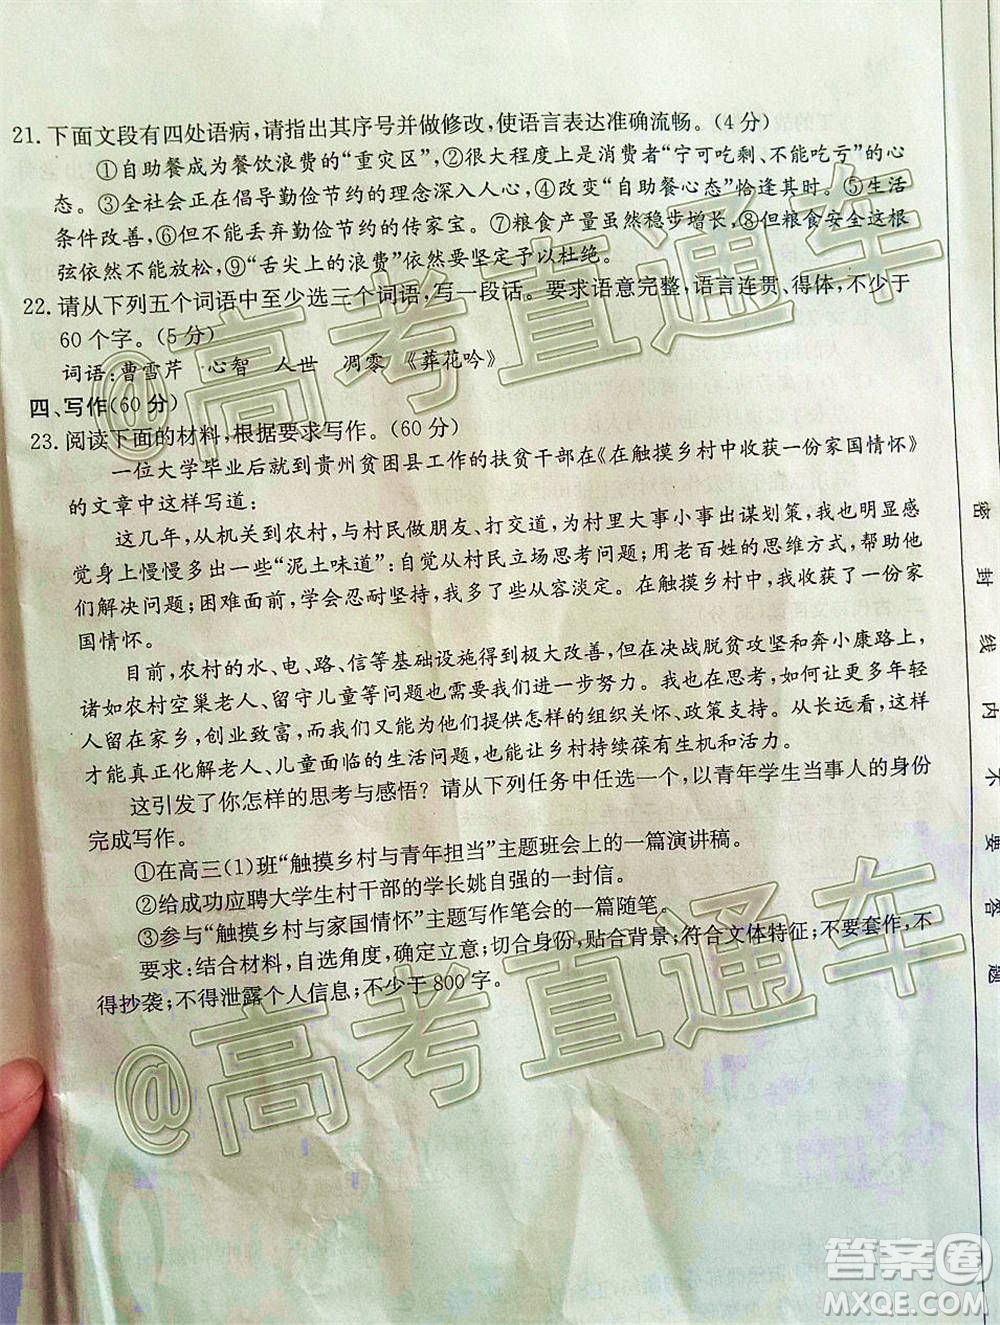 21.下面文段有四处语病,请指出其序号并做修改,使语言表达准确流畅。(4分)
①自助餐成为餐饮浪费的“重灾区”,②很大程度上是消费者“宁可吃剩、不能吃亏”的心
态。③全社会正在倡导勤俭节约的理念深入人心,④改变“自助餐心态”恰逢其时。⑤生活
条件改善,⑥但不能丢弃勤俭节约的传家宝。⑦粮食产量虽然稳步增长,⑧但粮食安全这根
弦依然不能放松,⑨“舌尖上的浪费”依然要坚定予以杜绝。
22.请从下列五个词语中至少选三个词语,写一段话。要求语意完整,语言连贯、得体,不少于
60个字。(5分)
词语:曹雪芹 心智 人世 凋零 《葬花吟》
四、写作(60分)
23.阅读下面的材料,根据要求写作。(60分)
一位大学毕业后就到贵州贫困县工作的扶贫干部在《在触摸乡村中收获一份家国情怀》
的文章中这样写道:
这几年,从机关到农村,与村民做朋友、打交道,为村里大事小事出谋划策,我也明显感
觉身上慢慢多出一些“泥土味道”:自觉从村民立场思考问题;用老百姓的思维方式,帮助他
们解决问题;困难面前,学会忍耐坚持,我多了一些从容淡定。在触摸乡村中,我收获一份家
国情怀。
目前,农村的水、电、路、信等基础设施得到极大改善,但在决战脱贫攻坚和奔小康路上,
诸如农村空巢老人、留守儿童等问题也需要我们进一步努力解决。我也在思考,如何让年轻
人留在家乡,创业致富,而我们又能为他们提供怎样的组织关怀、政策支持。从长远看,这样
才能真正化解老人、儿童面临的生活问题,也能让乡村持续葆有生机和活力。
这引发了你怎样的思考与感悟?请从下列任务中任选一个,以青年学生当事人的身份
完成写作。
①在高三(1)班“触摸乡村与青年担当”主题班会上的一篇演讲稿。
②给成功应聘大学生村干部的学长姚自强的一封信。
③参与“触摸乡村与家国情怀”主题写作笔会的一篇随笔。
要求:结合材料,自选角度,确定立意;切合身份,贴合背景;符合文体特征;不要套作,不
得抄袭;不得泄露个人信息;不少于800字。
密封线内不要答题
@高考直通车
@高考直通车
答案圈
MXQE.COM